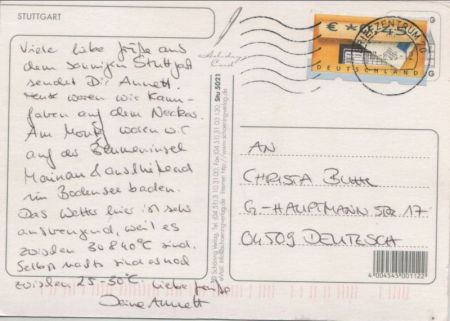 STUTTGART
Viele liebe Grüße aus
dem sonnigen Stuttgart
sendet Dir Annett.
Heute waren wir Kanu-
fahren auf dem Neckar.
Am Montag waren wir
auf der Blumeninsel
Mainau & anschließend
im Bodensee baden.
Das Wetter hier ist sehr
anstrengend, weil es
zwischen 30 & 40°C sind.
Selbst nachts sind es noch
zwischen 25-30°C. Liebe Grüße
Deine Annett
Schöning Verlag
Stu 50/21
BRIEFZENTRUM
DEUTSCHLAND
AN
CHRISTA
G.-HAUPTMANN STR 17
04509 DELITZSCH
4 004545 001122